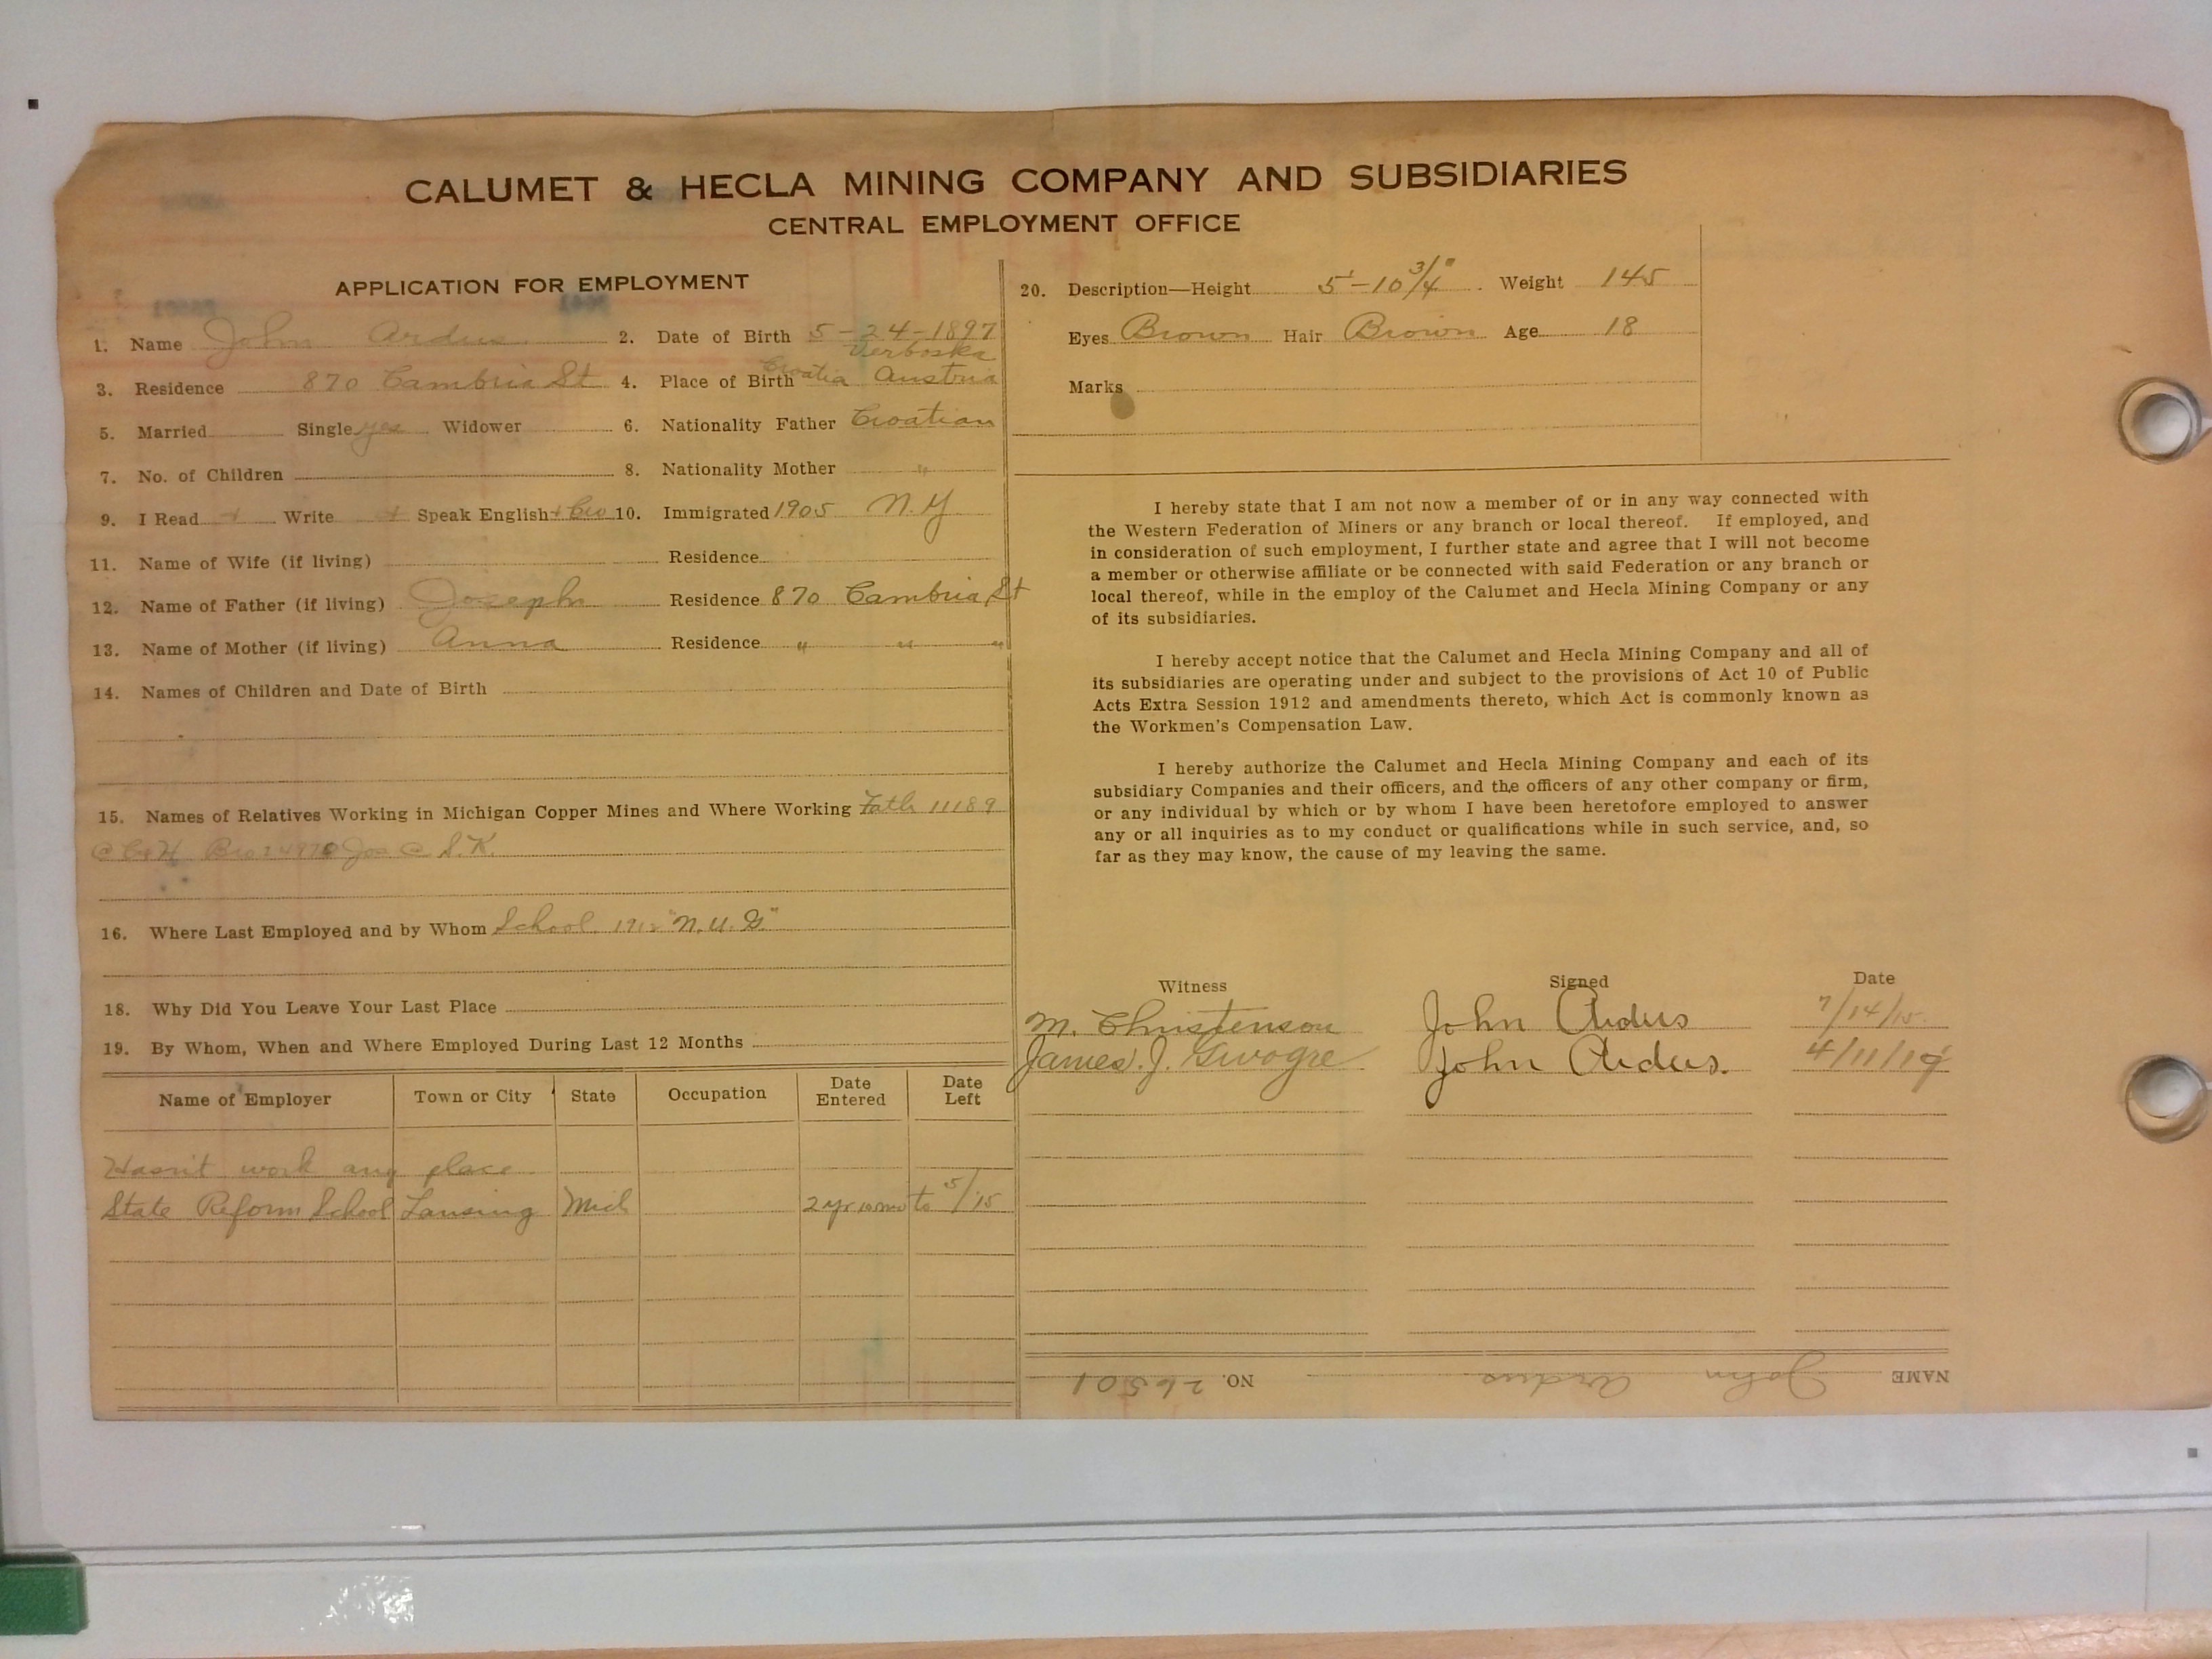 CALUMET & HECLA MINING COMPANY AND SUBSIDIARIES
CENTRAL EMPLOYMENT OFFICE
APPLICATION FOR EMPLOYMENT
1. Name John Ardus 2. Date of Birth 5-24-1897
Verboska
3. Residence 870 Cambria St 4. Place of Birth Croatia Austria
5. Married Single yes Widower 6. Nationality Father Croatian
7. No. of Children 8. Nationality Mother "
9. I Read + Write + Speak English + Cro 10. Immigrated 1905 N.Y
11. Name of Wife (if living) Residence
12. Name of Father (if living) Joseph Residence 870 Cambria St
13. Name of Mother (if living) Anna Residence " " "
14. Names of Children and Date of Birth
15. Names of Relatives Working in Michigan Copper Mines and Where Working Fath 11189
@ C&H Bro 24970 Jos @ S.K.
16. Where Last Employed and by Whom School 1912 "N.U.G."
18. Why Did You Leave Your Last Place
19. By Whom, When and Where Employed During Last 12 Months
Name of Employer Town or City State Occupation Date Entered Date Left
Hasn't work any place
State Reform School Lansing Mich 2 yr 10 mo to 5/15
20. Description—Height 5'-10 3/4" Weight 145
Eyes Brown Hair Brown Age 18
Marks
I hereby state that I am not now a member of or in any way connected with
the Western Federation of Miners or any branch or local thereof. If employed, and
in consideration of such employment, I further state and agree that I will not become
a member or otherwise affiliate or be connected with said Federation or any branch or
local thereof, while in the employ of the Calumet and Hecla Mining Company or any
of its subsidiaries.
I hereby accept notice that the Calumet and Hecla Mining Company and all of
its subsidiaries are operating under and subject to the provisions of Act 10 of Public
Acts Extra Session 1912 and amendments thereto, which Act is commonly known as
the Workmen's Compensation Law.
I hereby authorize the Calumet and Hecla Mining Company and each of its
subsidiary Companies and their officers, and the officers of any other company or firm,
or any individual by which or by whom I have been heretofore employed to answer
any or all inquiries as to my conduct or qualifications while in such service, and, so
far as they may know, the cause of my leaving the same.
Witness Signed Date
M. Christenson John Ardus 7/14/15
James J. John Ardus. 4/11/19
NAME John Ardus NO. 26501